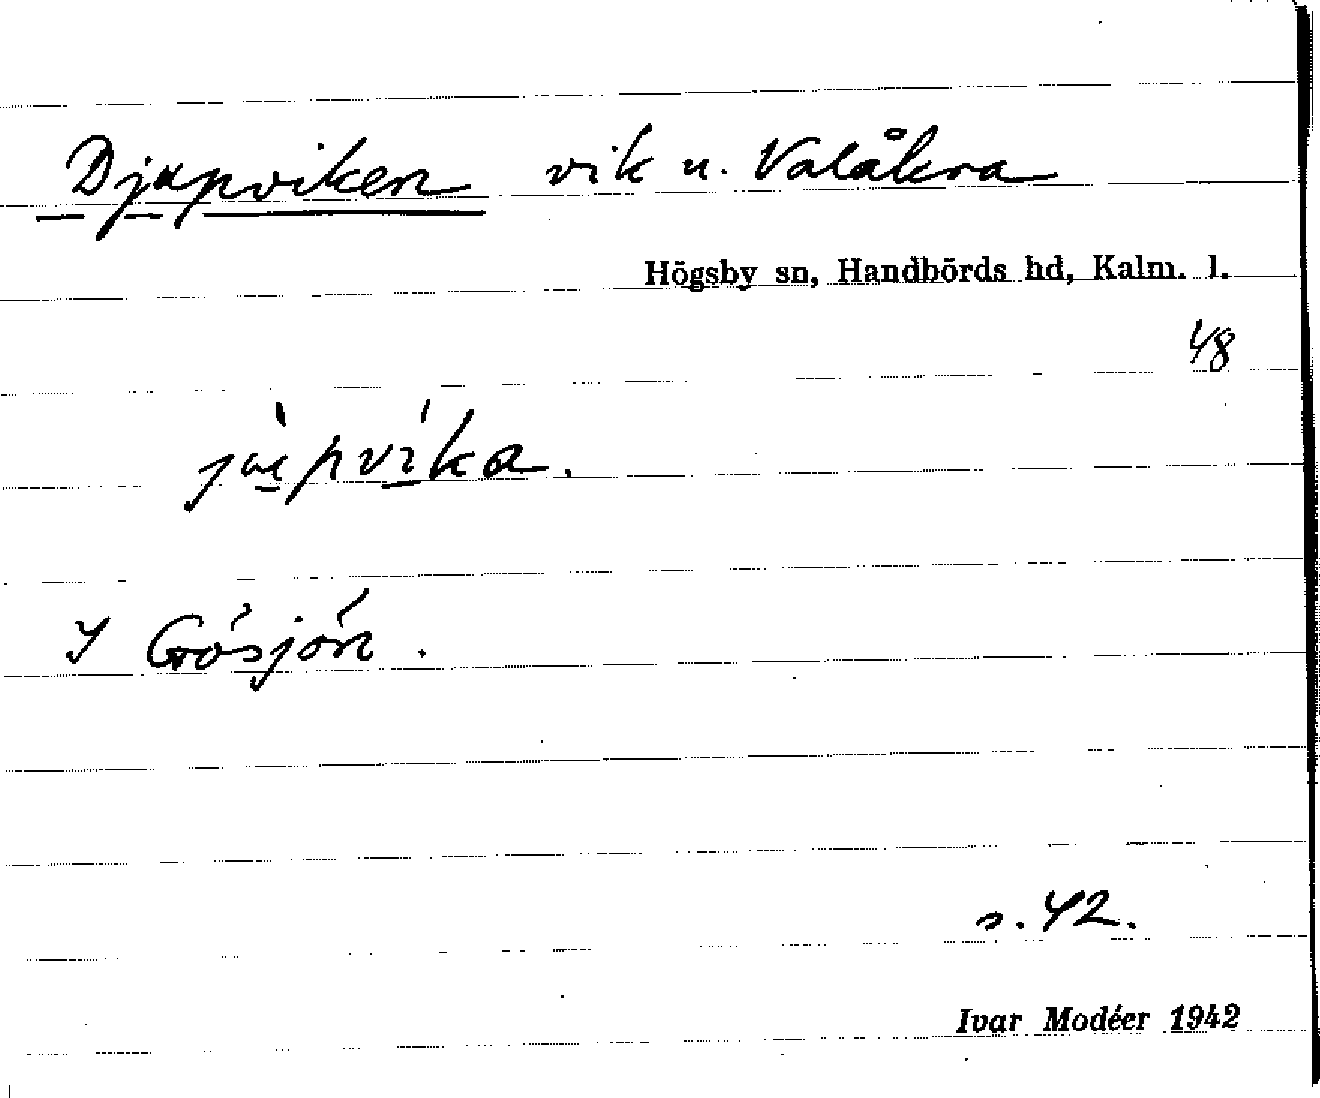 Djupviken vik u. Valåkra
Högsby sn, Handbörds hd, Kalm. l.
48
I Gösjön.
s. 42.
Ivar Modéer 1942